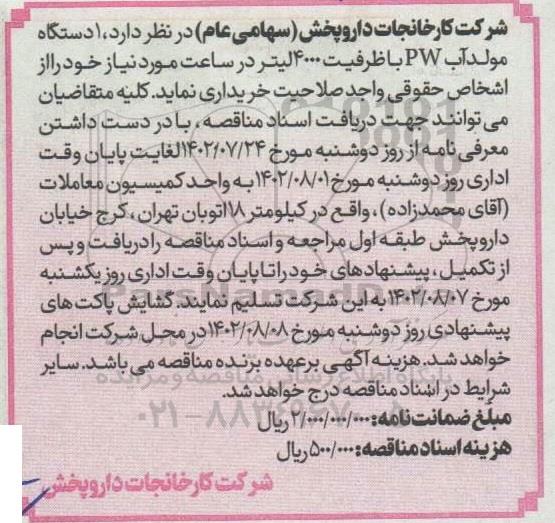 شرکت کارخانجات داروپخش (سهامی عام) در نظر دارد، ۱ دستگاه
مولد آب PW با ظرفیت ۴۰۰۰ لیتر در ساعت مورد نیاز خود را از
اشخاص حقوقی واجد صلاحیت خریداری نماید. کلیه متقاضیان
می توانند جهت دریافت اسناد مناقصه، با در دست داشتن
معرفی نامه از روز دوشنبه مورخ ۱۴۰۲/۰۷/۲۴ لغایت پایان وقت
اداری روز دوشنبه مورخ ۱۴۰۲/۰۸/۰۱ به واحد کمیسیون معاملات
(آقای محمدزاده)، واقع در کیلومتر ۱۸ اتوبان تهران، کرج خیابان
داروپخش طبقه اول مراجعه و اسناد مناقصه را دریافت و پس
از تکمیل، پیشنهادهای خود را تا پایان وقت اداری روز یکشنبه
مورخ ۱۴۰۲/۰۸/۰۷ به این شرکت تسلیم نمایند. گشایش پاکت های
پیشنهادی روز دوشنبه مورخ ۱۴۰۲/۰۸/۰۸ در محل شرکت انجام
خواهد شد. هزینه آگهی بر عهده برنده مناقصه می باشد. سایر
شرایط در اسناد مناقصه درج خواهد شد.
مبلغ ضمانت نامه: ۲/۰۰۰/۰۰۰/۰۰۰ ریال
هزینه اسناد مناقصه: ۵۰۰/۰۰۰ ریال
شرکت کارخانجات داروپخش